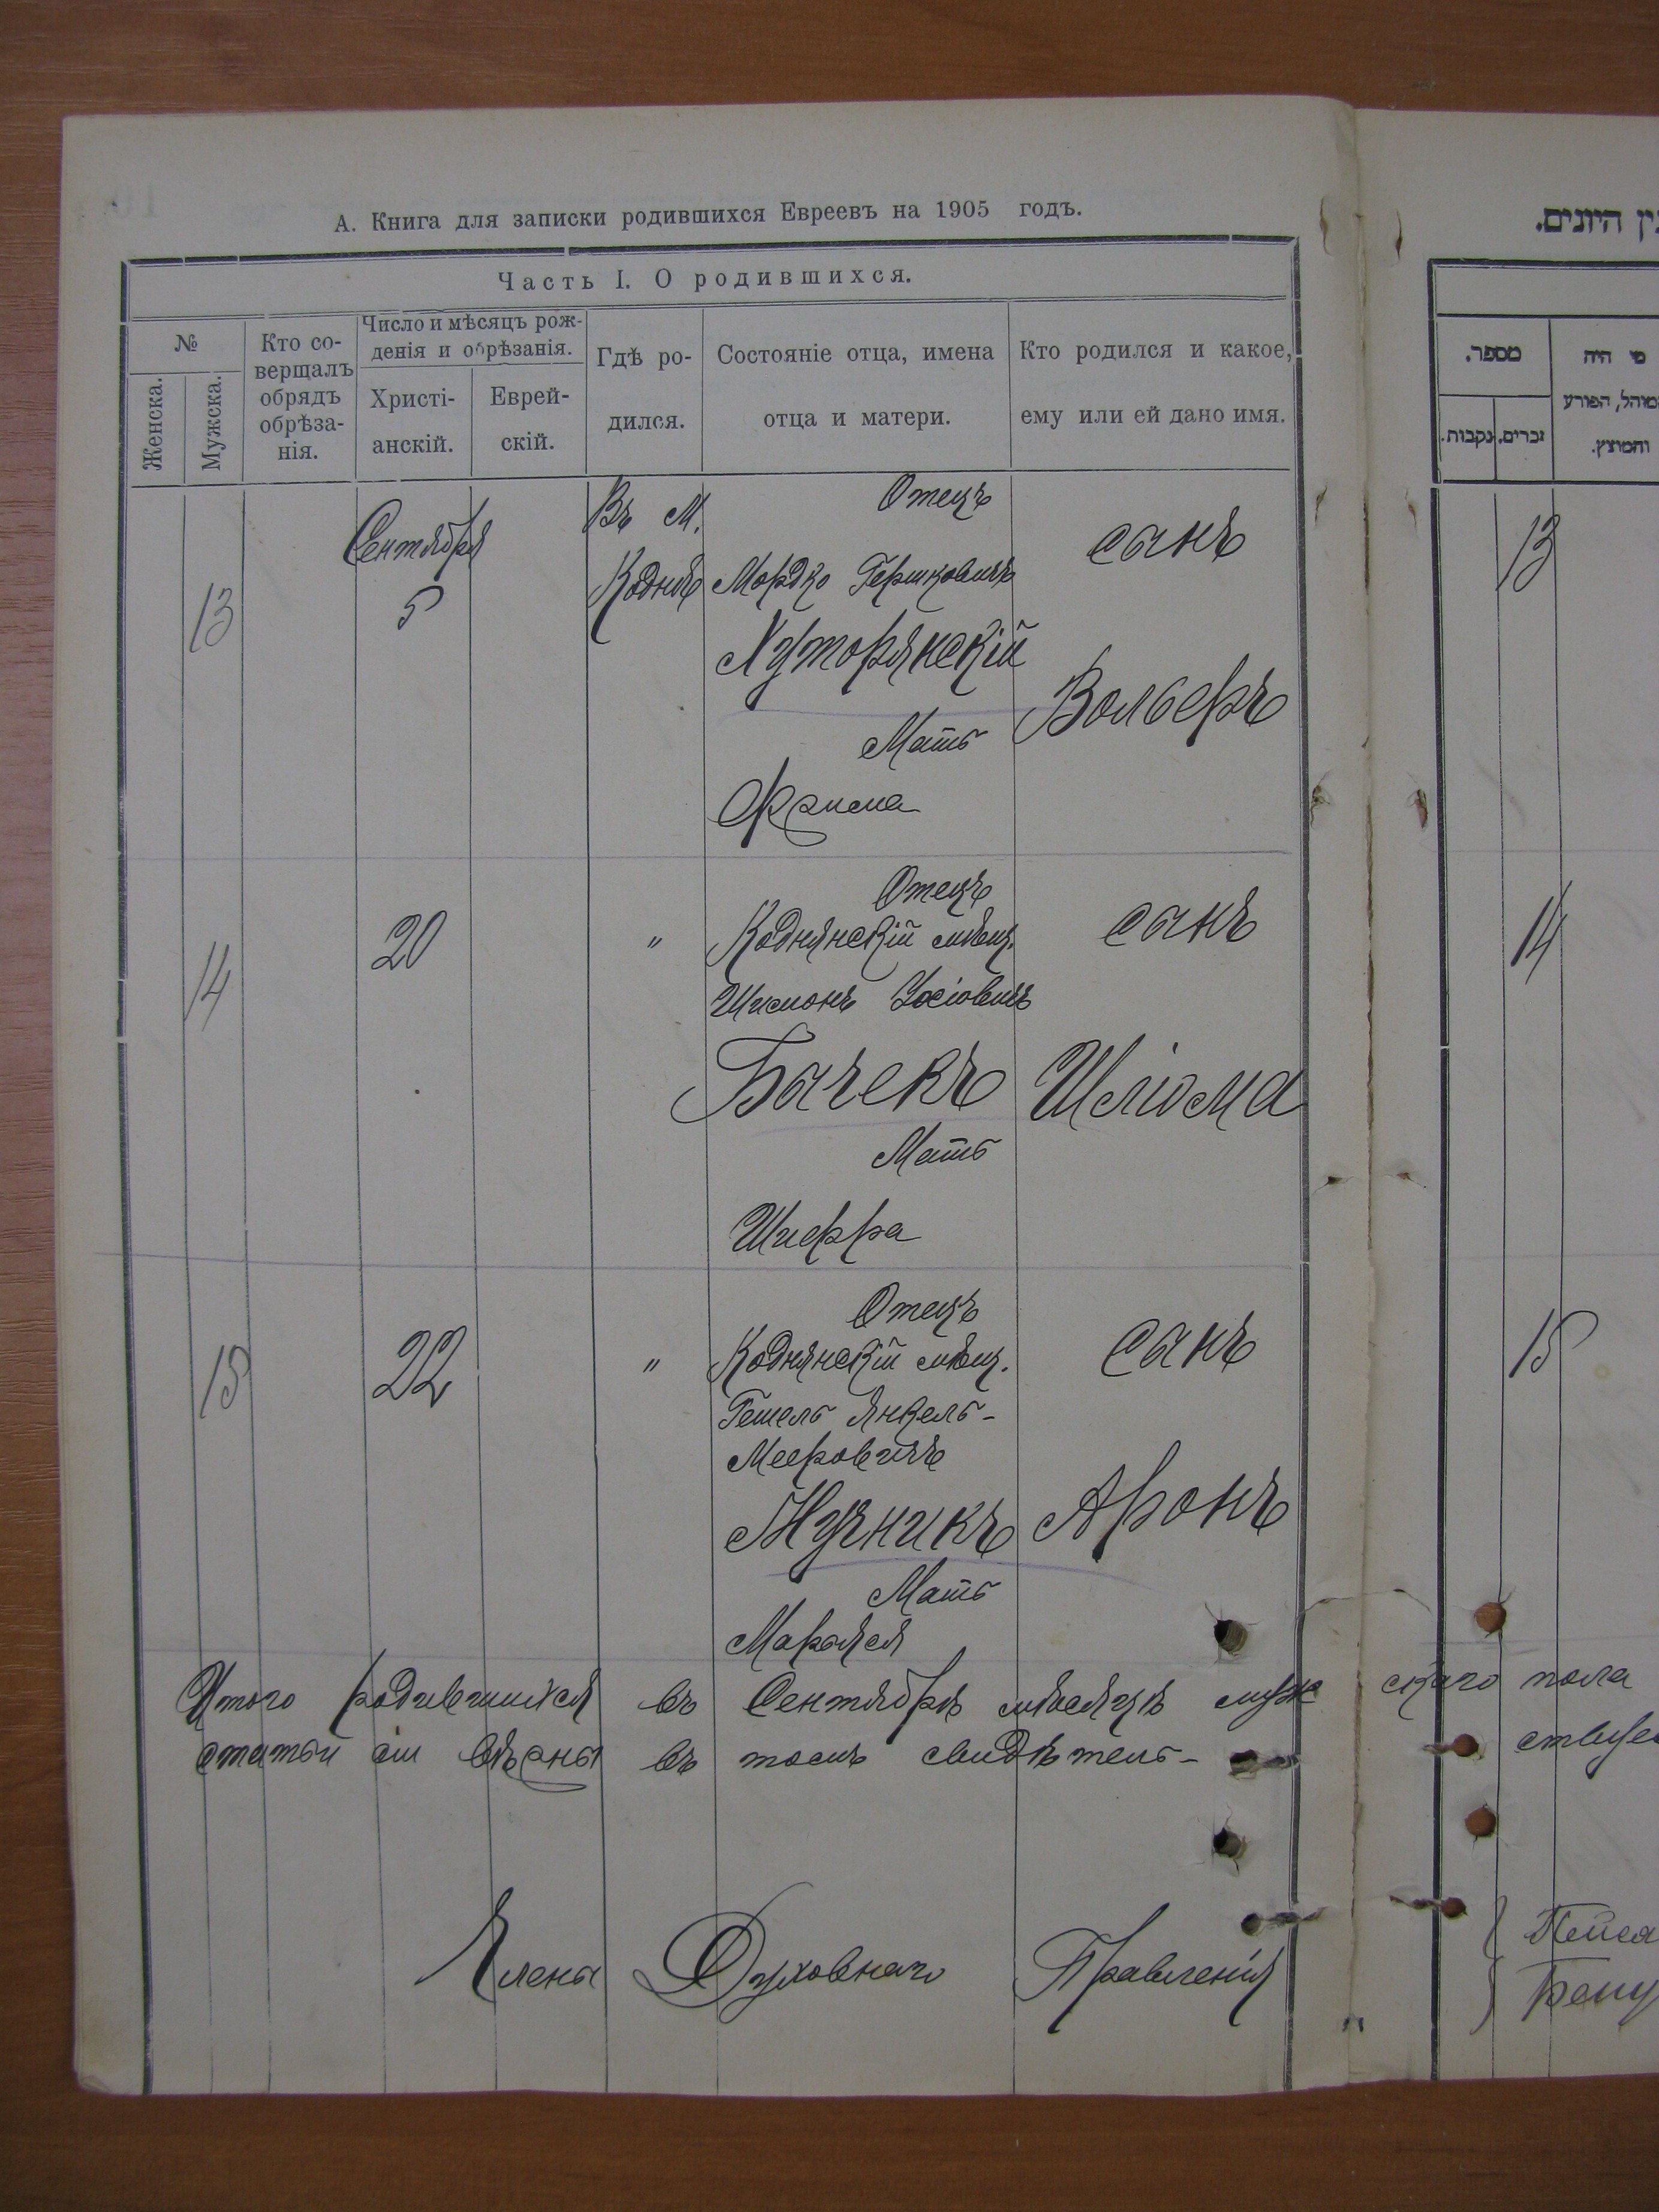 А. Книга для записки родившихся Евреевъ на 1905 годъ.
Часть I. О родившихся.
№
Женска.
Мужска.
Кто со-
вершалъ
обрядъ
обрѣза-
нія.
Число и мѣсяцъ рож-
денія и обрѣзанія.
Христі-
анскій.
Еврей-
скій.
Гдѣ ро-
дился.
Состояніе отца, имена
отца и матери.
Кто родился и какое,
ему или ей дано имя.
13
Сентября
5
Въ М.
Коднѣ
Отецъ
Мордко Гершковичъ
Хуторянскій
Мать
Фрима
сынъ
Вольфъ
14
20
"
Отецъ
Коднянскій мѣщ.
Шимонъ Іосіовичъ
Бычекъ
Мать
Шифра
сынъ
Шліома
15
22
"
Отецъ
Коднянскій мѣщ.
Гешель Янкель-
Мееровичъ
Мучникъ
Мать
Марьяся
сынъ
Аронъ
Итого родившихся въ Сентябрѣ мѣсяцѣ муж скаго пола
статьи сіи вѣрны въ томъ свидѣтель-
Члены Духовнаго Правленія
ין היונים.
מספר.
זכרים.
נקבות.
מי היה
המוהל, הפורע
והמוצץ.
13
14
15